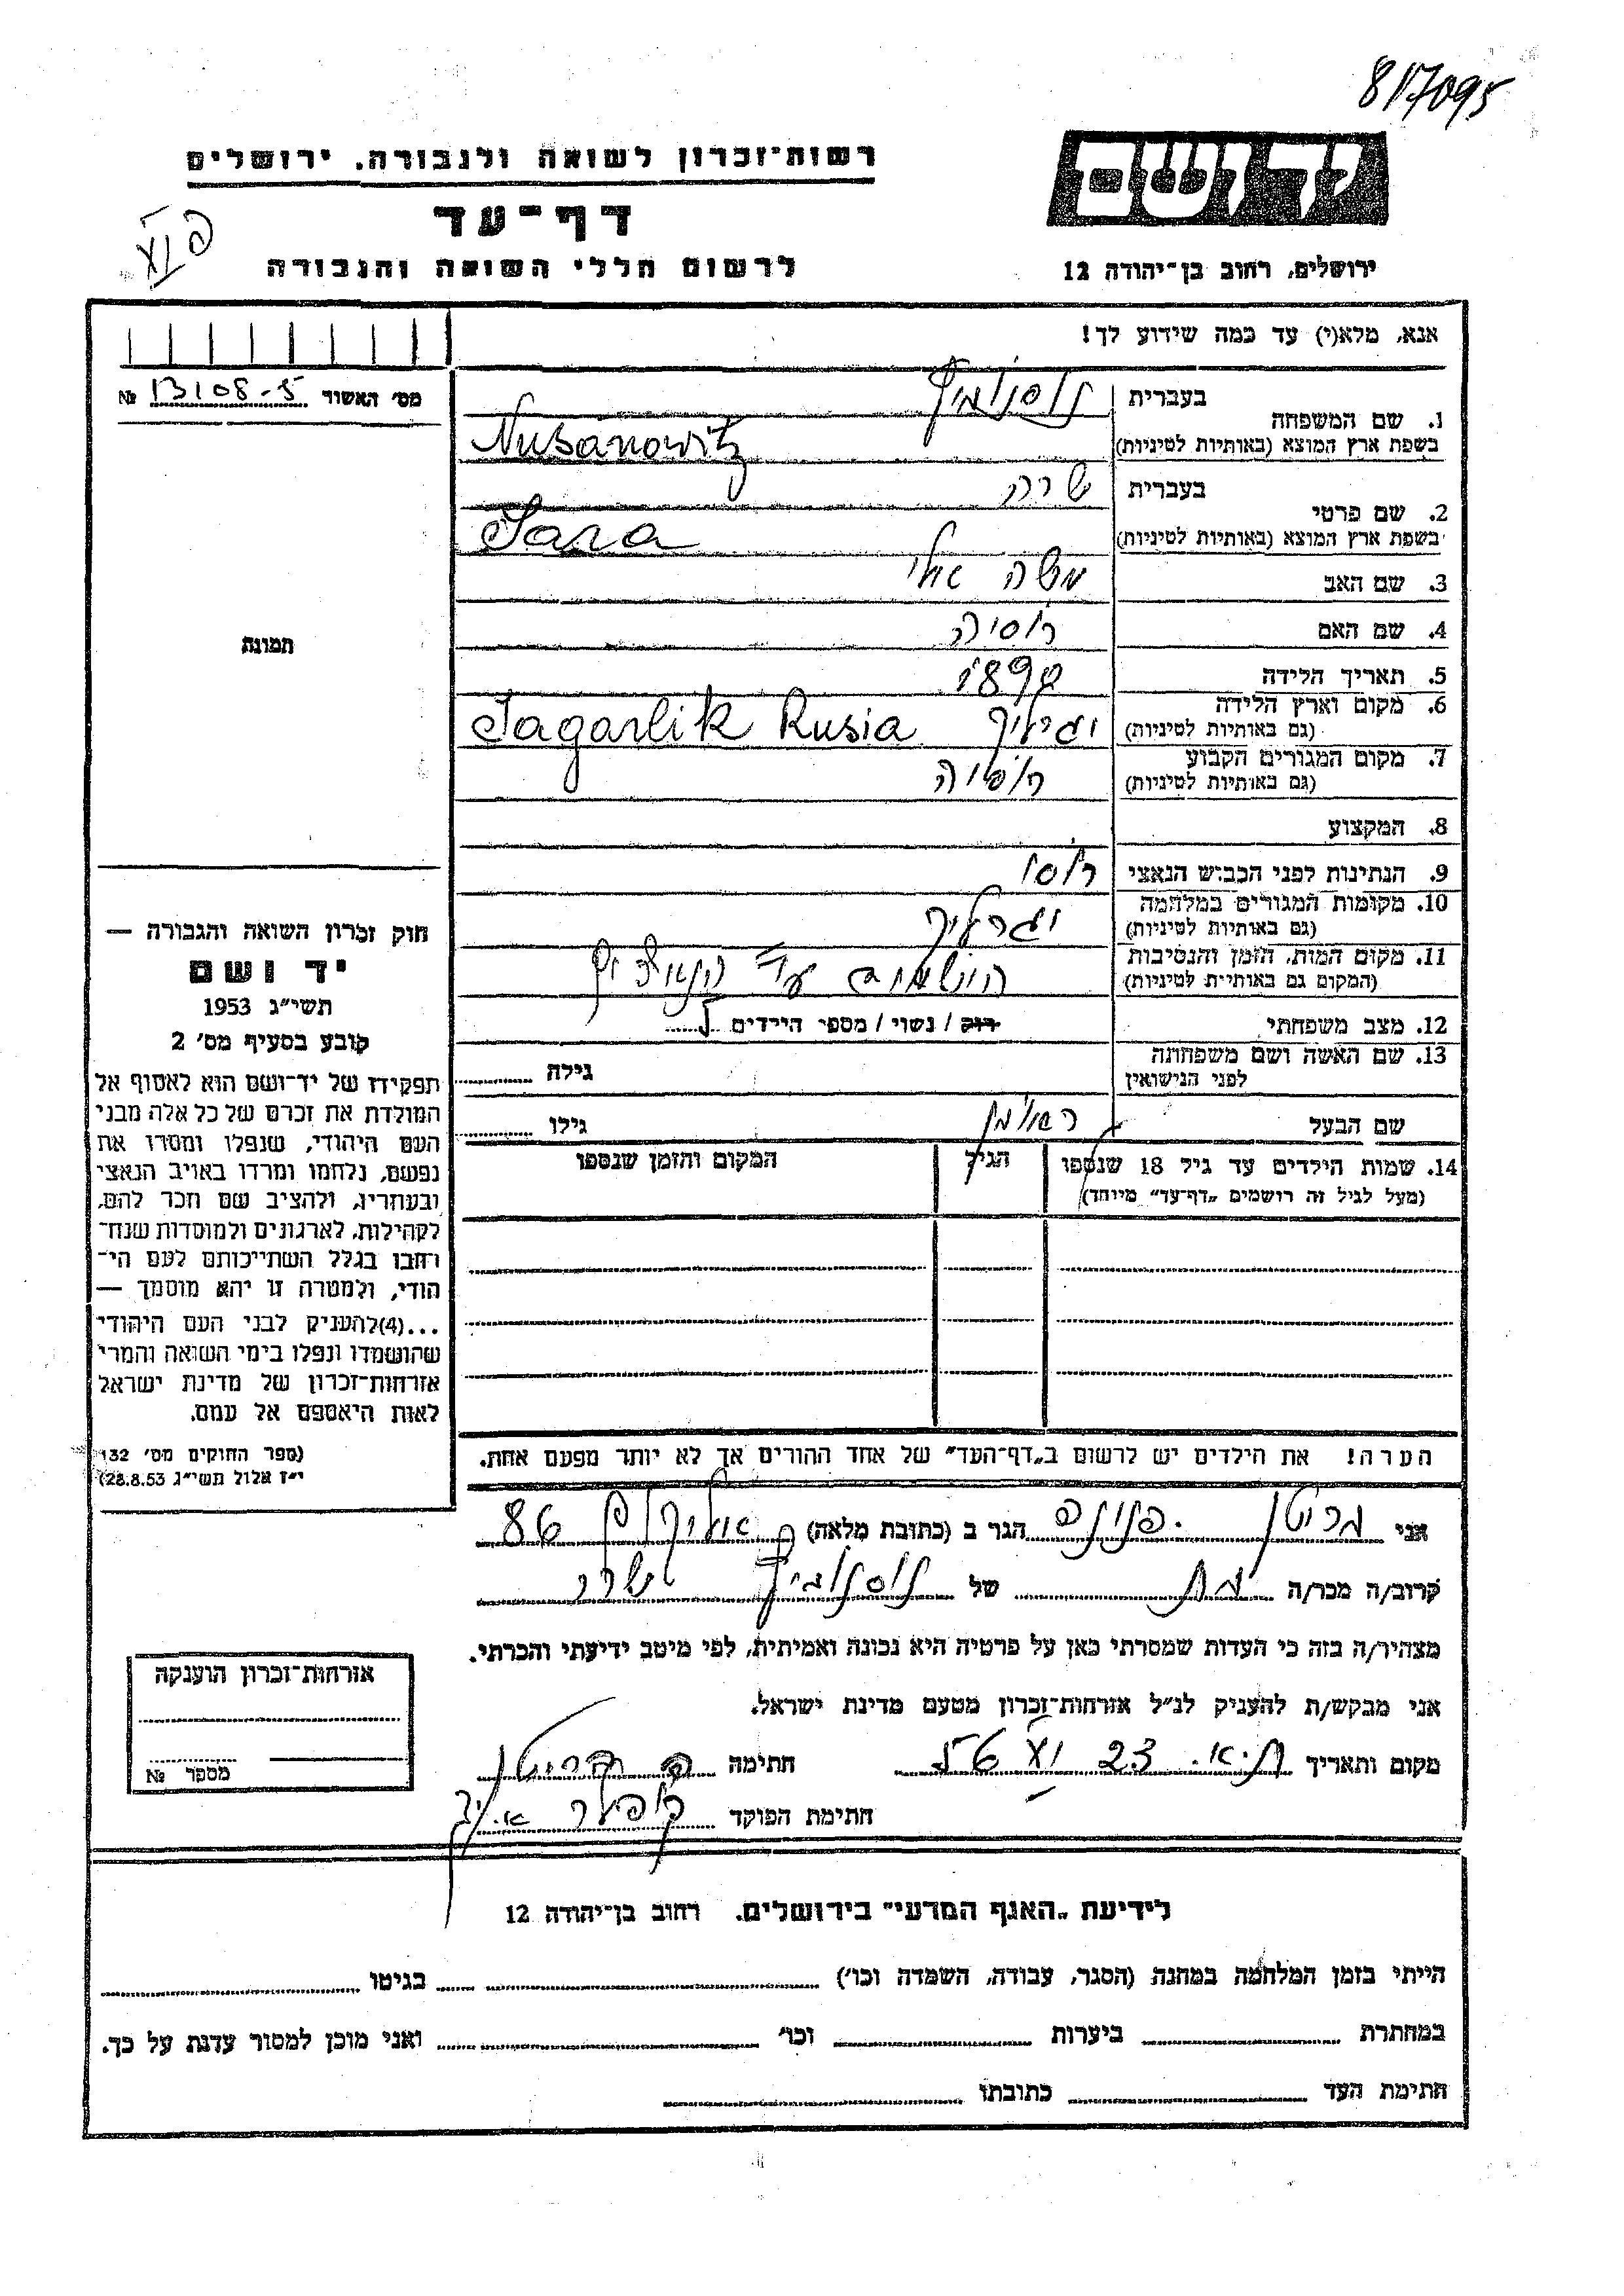 817095
רשות־זכרון לשואה ולגבורה, ירושלים
דף־עד
לרשום חללי השואה והגבורה
יד ושם
ירושלים, רחוב בן־יהודה 12
אנא, מלא(י) עד כמה שידוע לך!
מס׳ האשור 13108-5 №
1. שם המשפחה
בעברית
בשפת ארץ המוצא (באותיות לטיניות) Nusanowitz
2. שם פרטי
בעברית שרה
בשפת ארץ המוצא (באותיות לטיניות) Sara
3. שם האב משה
4. שם האם רוסיה
5. תאריך הלידה 1890
6. מקום וארץ הלידה
(גם באותיות לטיניות) Jagarlik Rusia
7. מקום המגורים הקבוע
(גם באותיות לטיניות) רוסיה
8. המקצוע
9. הנתינות לפני הכבוש הנאצי רוסי
10. מקומות המגורים במלחמה
(גם באותיות לטיניות)
11. מקום המות, הזמן והנסיבות
(המקום גם באותיות לטיניות)
12. מצב משפחתי רוק / נשוי / מספר הילדים
13. שם האשה ושם משפחתה גילה
לפני הנישואין
שם הבעל גילו
14. שמות הילדים עד גיל 18 שנספו הגיל המקום והזמן שנספו
(מעל לגיל זה רושמים „דף־עד” מיוחד)
הערה! את הילדים יש לרשום ב„דף־העד” של אחד ההורים אך לא יותר מפעם אחת.
תמונה
חוק זכרון השואה והגבורה —
יד ושם
תשי״ג 1953
קובע בסעיף מס׳ 2
תפקידו של יד־ושם הוא לאסוף אל
המולדת את זכרם של כל אלה מבני
העם היהודי, שנפלו ומסרו את
נפשם, נלחמו ומרדו באויב הנאצי
ובעוזריו, ולהציב שם וזכר להם,
לקהילות, לארגונים ולמוסדות שנח־
רבו בגלל השתייכותם לעם הי־
הודי, ולמטרה זו יהא מוסמך —
...(4)להעניק לבני העם היהודי
שהושמדו ונפלו בימי השואה והמרי
אזרחות־זכרון של מדינת ישראל
לאות היאספם אל עמם.
(ספר החוקים מס׳ 132
י״ז אלול תשי״ג 28.8.53)
אני הגר ב (כתובת מלאה) 86
קרוב/ה מכר/ה בת של שרה
מצהיר/ה בזה כי העדות שמסרתי כאן על פרטיה היא נכונה ואמיתית, לפי מיטב ידיעתי והכרתי.
אני מבקש/ת להעניק לנ״ל אזרחות־זכרון מטעם מדינת ישראל.
מקום ותאריך ת״א. 23 חתימה
חתימת הפוקד
אזרחות־זכרון הוענקה
מספר №
לידיעת „האגף המדעי” בירושלים, רחוב בן־יהודה 12
הייתי בזמן המלחמה במחנה (הסגר, עבודה, השמדה וכו׳) בגיטו
במחתרת ביערות וכו׳ ואני מוכן למסור עדות על כך.
חתימת העד כתובתו